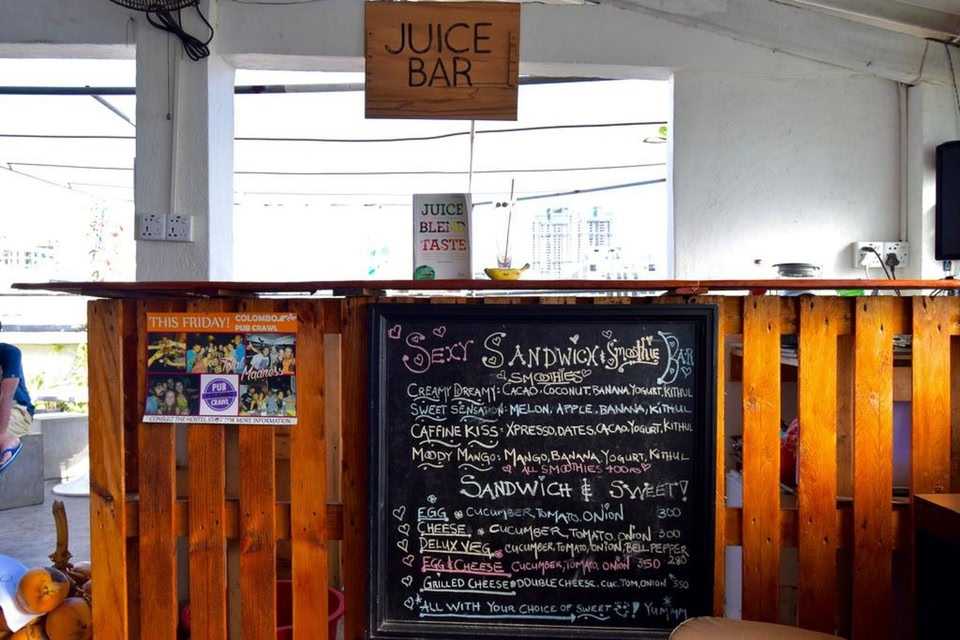 JUICE
BAR
JUICE
BLEND
TASTE
THIS FRIDAY! COLOMBO
PUB CRAWL
Total
Madness
PUB
CRAWL
CONSULT THE HOSTEL STAFF FOR MORE INFORMATION
SEXY SANDWICH & SMOOTHIE BAR
SMOOTHIES
CREAMY DREAMY: CACAO, COCONUT, BANANA YOGURT, KITHUL
SWEET SENSATION: MELON, APPLE, BANANA, KITHUL
CAFFINE KISS: XPRESSO, DATES, CACAO, YOGURT, KITHUL
MOODY MANGO: MANGO, BANANA, YOGURT, KITHUL
ALL SMOOTHIES 400RS
SANDWICH & SWEET!
EGG CUCUMBER, TOMATO, ONION 300
CHEESE CUCUMBER, TOMATO, ONION 300
DELUX VEG CUCUMBER, TOMATO, ONION, BELL PEPPER 280
EGG & CHEESE CUCUMBER, TOMATO, ONION 350
GRILLED CHEESE DOUBLE CHEESE, CUC, TOM, ONION 350
ALL WITH YOUR CHOICE OF SWEET ! YUMMM